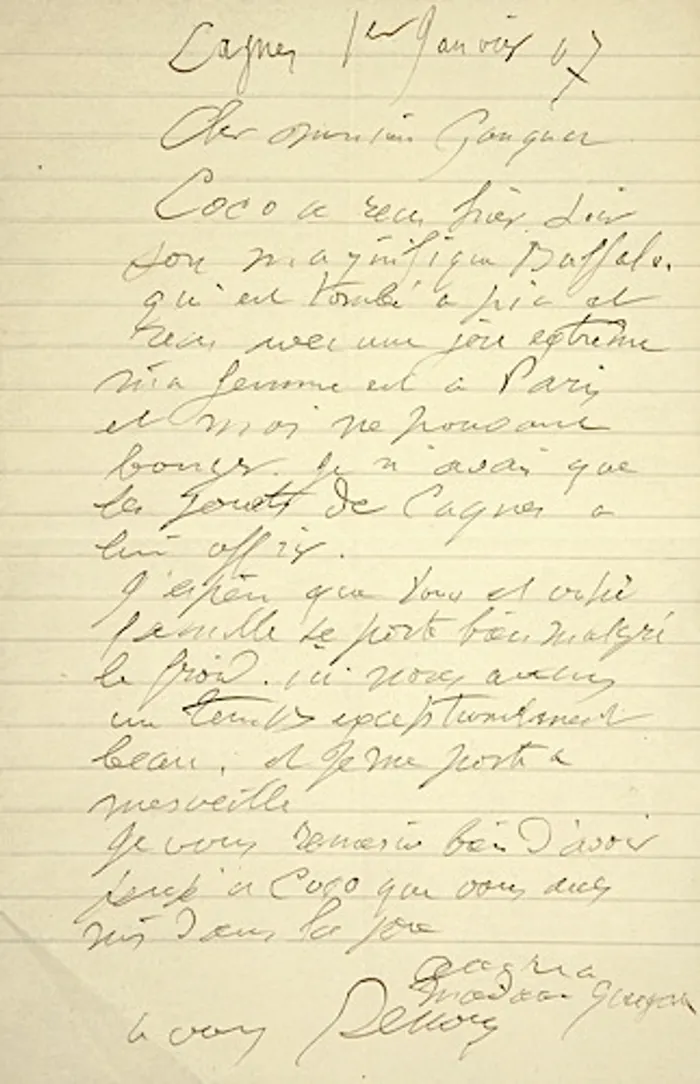 Cagnes 1er Janvier 07
Cher monsieur Gangnat
Coco a reçu hier soir
son magnifique Buffalo.
qui est tombé a pic et
reçu avec une joie extrême
ma femme est a Paris
et moi ne pouvant
bouger. je n'avais que
les jouets de Cagnes a
lui offrir.
J'espère que vous et votre
famille se porte bien malgré
le froid. ici nous avons
un temps exceptionnellement
beau. et je me porte a
merveille
Je vous remercie bien d'avoir
pensé a Coco que vous avez
mis dans la joie
madame
a vous Renoir